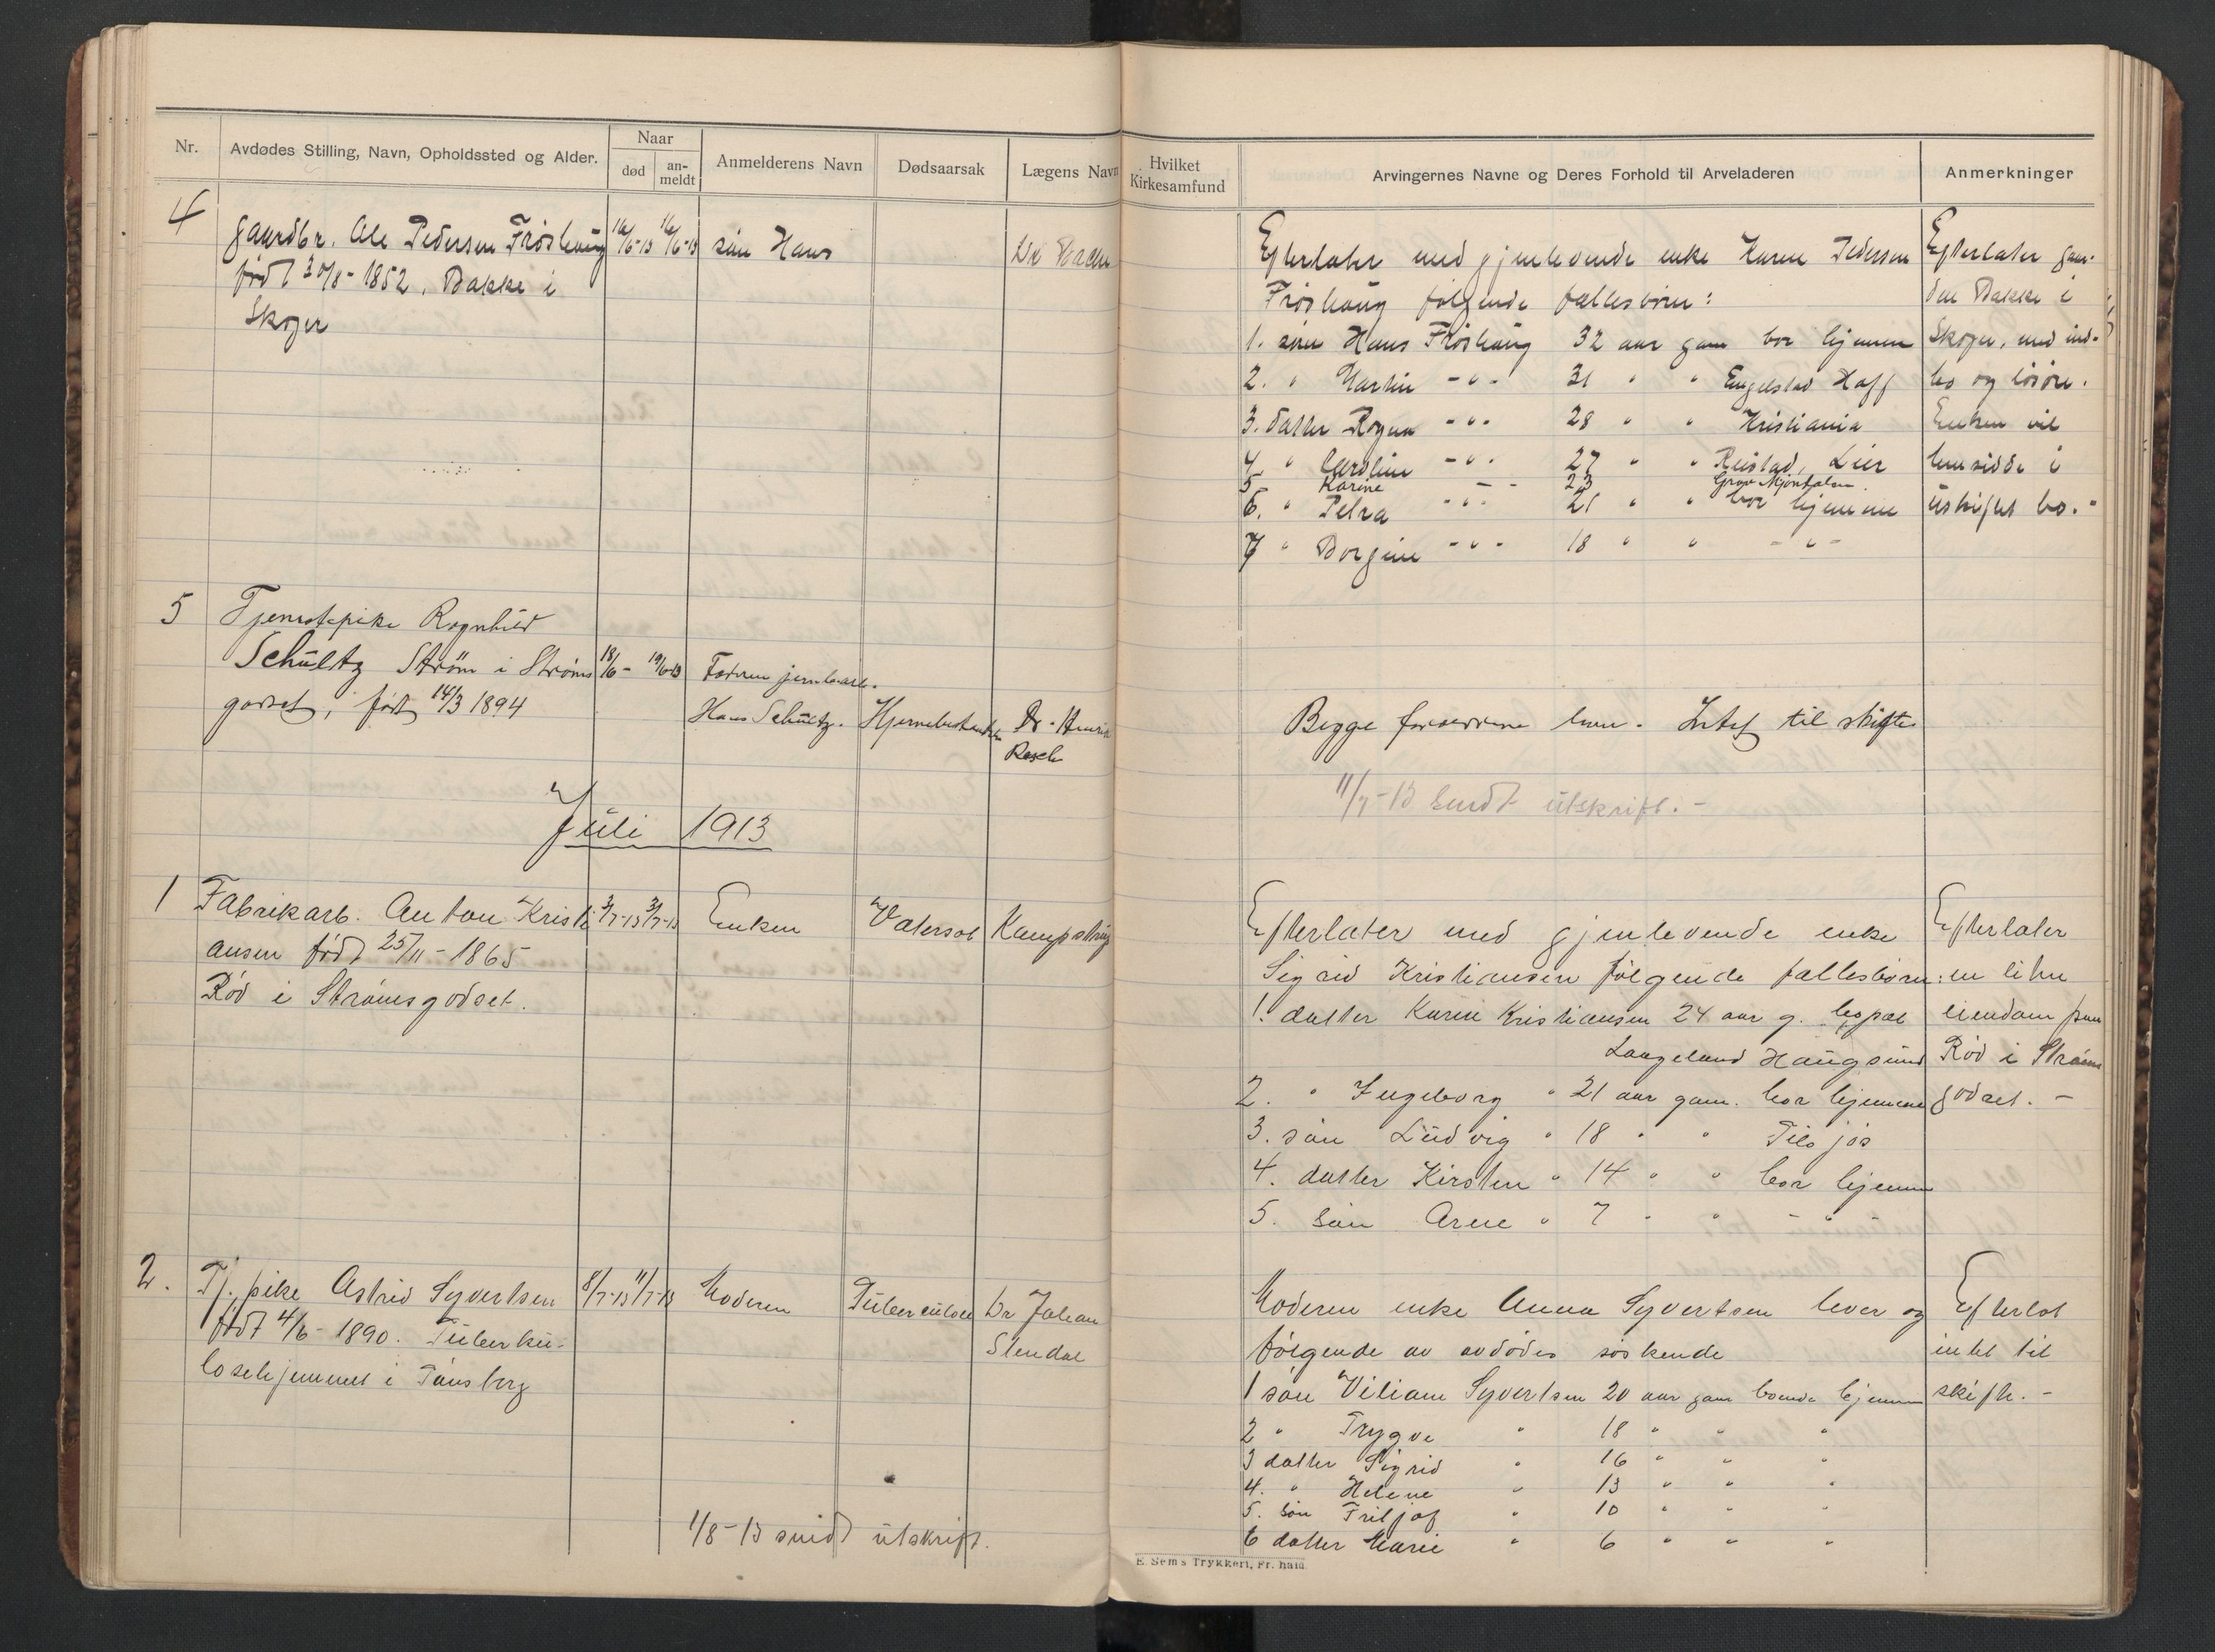 Nr.
Avdødes Stilling, Navn, Opholdssted og Alder.
Naar
død
an-
meldt
Anmelderens Navn
Dødsaarsak
Lægens Navn
4
gaardbr. Ole Pedersen Frøshaug 16/6-13 16/6-13 søn Hans Dr
født 30/8-1852, Bakke i
Skoger
5 Tjenestepike Ragnhild
Schultz Strøm i Strøms 18/6- 19/6-13 Faderen jernbarb.
godset, født 14/3 1894 Hans Schultz. Dr. Henrik
Rasch
Juli 1913
1 Fabrikarb. Anton Kristi 3/7-13 3/7-13 Enken Vatersot
ansen født 25/11-1865
Rød i Strømsgodset.
2. Tj.pike Astrid Syvertsen 8/7-13 11/7-13 Moderen Tuberculose Dr Johan
født 4/6-1890. Tuberku- Stendal
losehjemmet i Tønsberg
1/8-13 sendt utskrift.
Hvilket
Kirkesamfund
Arvingernes Navne og Deres Forhold til Arveladeren
Anmerkninger
Efterlater med gjenlevende enke Karen Pedersen Efterlater gaar-
Frøshaug følgende fællesbørn: den Bakke i
1. søn Hans Frøshaug 32 aar gam bor hjemme Skoger, med ind-
2. " Martin - " - 31 " " Engelstad Hoff bo og løsøre.
3. datter Ragna - " - 28 " " Kristiania Enken vil
4 " Caroline - " - 27 " " Reistad, Lier hensidde i
5 Karine - - 23 Mjøndalen.
6. " Petra - " - 21 " " bor hjemme uskiftet bo. "
7 " Borgine - " - 18 " " - " -
Begge forældrene lever. Intet til skifte
11/7-13 sendt utskrift. -
Efterlater med gjenlevende enke Efterlater
Sigrid Kristiansen følgende fællesbørn: en liten
1. datter Karin Kristiansen 24 aar g. bopæl eiendom paa
Langeland Haugsund Rød i Strøms
2. " Ingeborg " 21 aar gam. bor hjemme godset. -
3. søn Ludvig " 18 " " Tilsjøs
4. datter Kirsten " 14 " " bor hjemme
5. søn Arne " 7 " " - " -
Moderen enke Anna Syvertsen lever og Efterlot
følgende av avdødes søskende intet til
1 søn Viliam Syvertsen 20 aar gam boende hjemme skifte. -
2 " Trygve " 18 " " "
3 datter Sigrid " 16 " " "
4. " Helene " 13 " " "
5. søn Fritjof " 10 " " "
6 datter Marie " 6 " " "
E. Sem's Trykkeri, Fr. hald